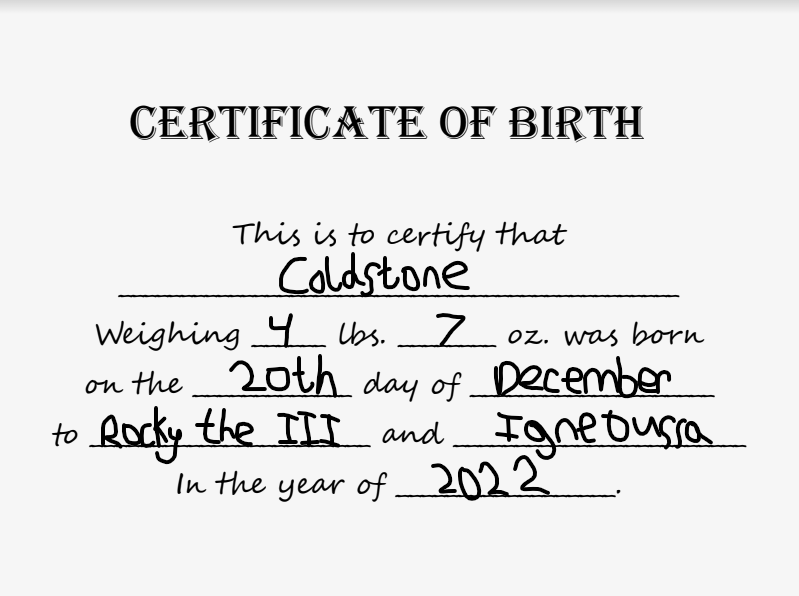 CERTIFICATE OF BIRTH
This is to certify that
Coldstone
Weighing 4 lbs. 7 oz. was born
on the 20th day of December
to Rocky the III and Igneoussa
In the year of 2022.